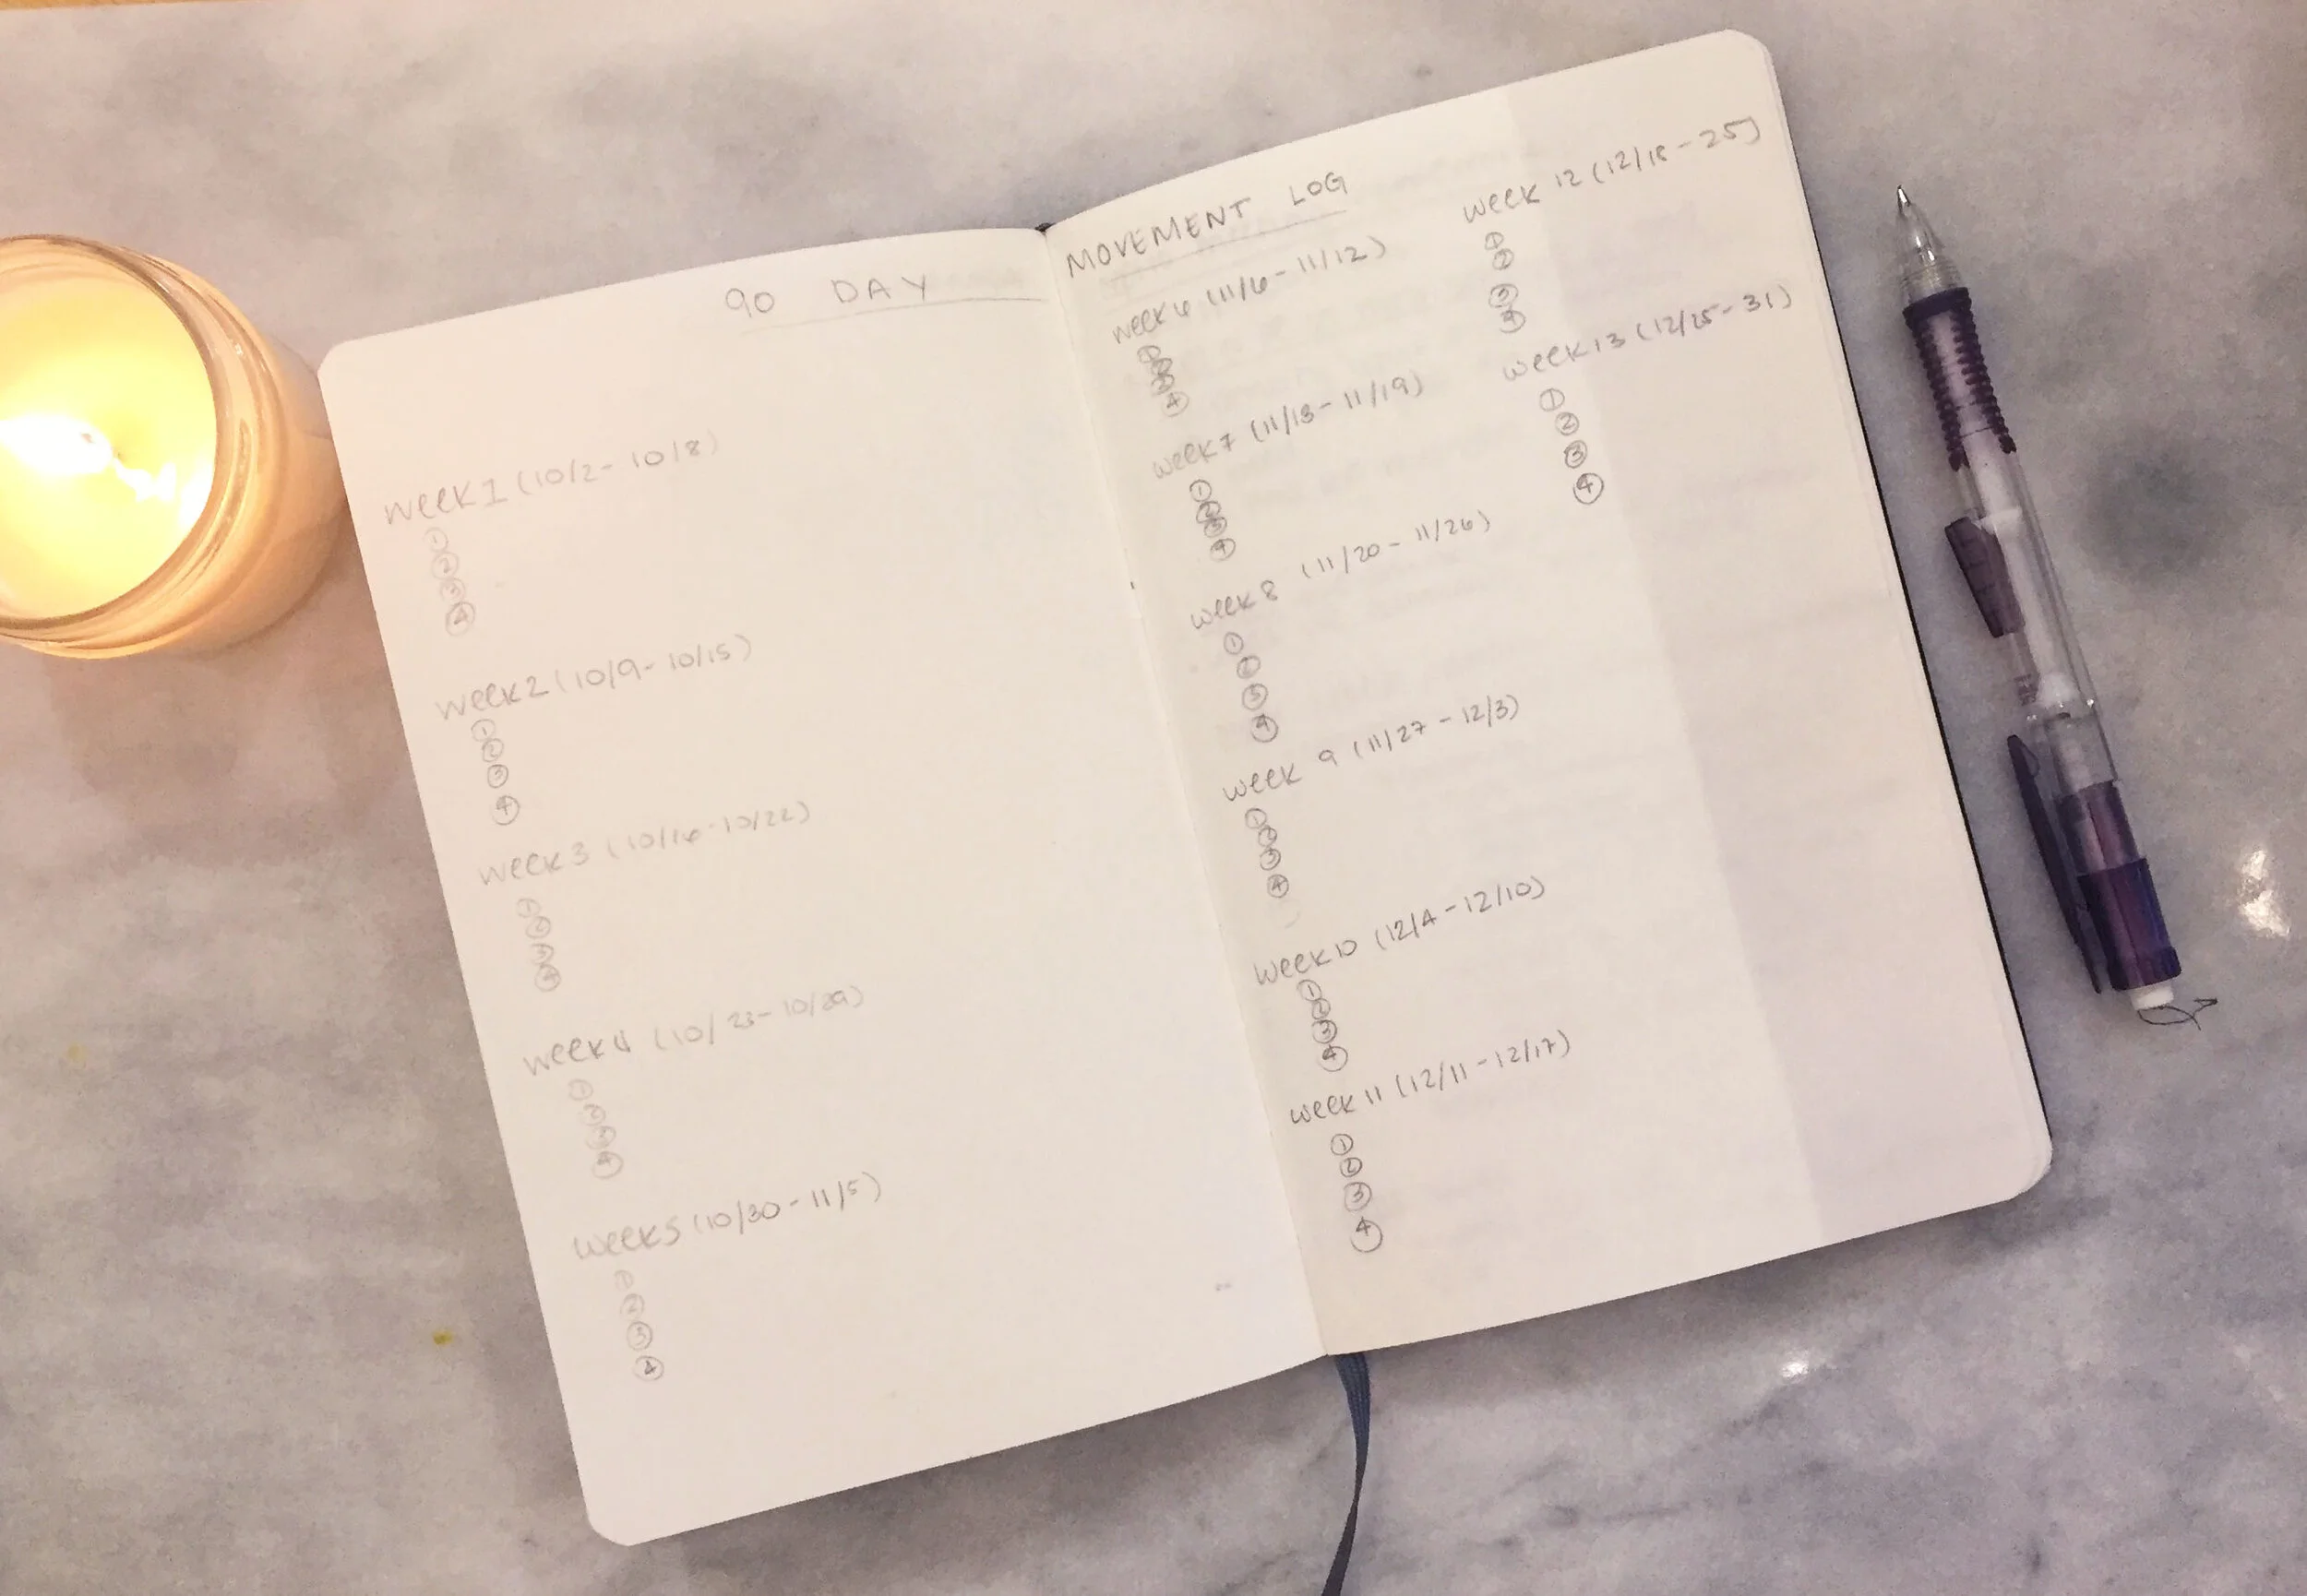 90 DAY MOVEMENT LOG
week 1 (10/2 - 10/8)
①
②
③
④
week 2 (10/9 - 10/15)
①
②
③
④
week 3 (10/16 - 10/22)
①
②
③
④
week 4 (10/23 - 10/29)
①
②
③
④
week 5 (10/30 - 11/5)
①
②
③
④
week 6 (11/6 - 11/12)
①
②
③
④
week 7 (11/13 - 11/19)
①
②
③
④
week 8 (11/20 - 11/26)
①
②
③
④
week 9 (11/27 - 12/3)
①
②
③
④
week 10 (12/4 - 12/10)
①
②
③
④
week 11 (12/11 - 12/17)
①
②
③
④
week 12 (12/18 - 25)
①
②
③
④
week 13 (12/25 - 31)
①
②
③
④